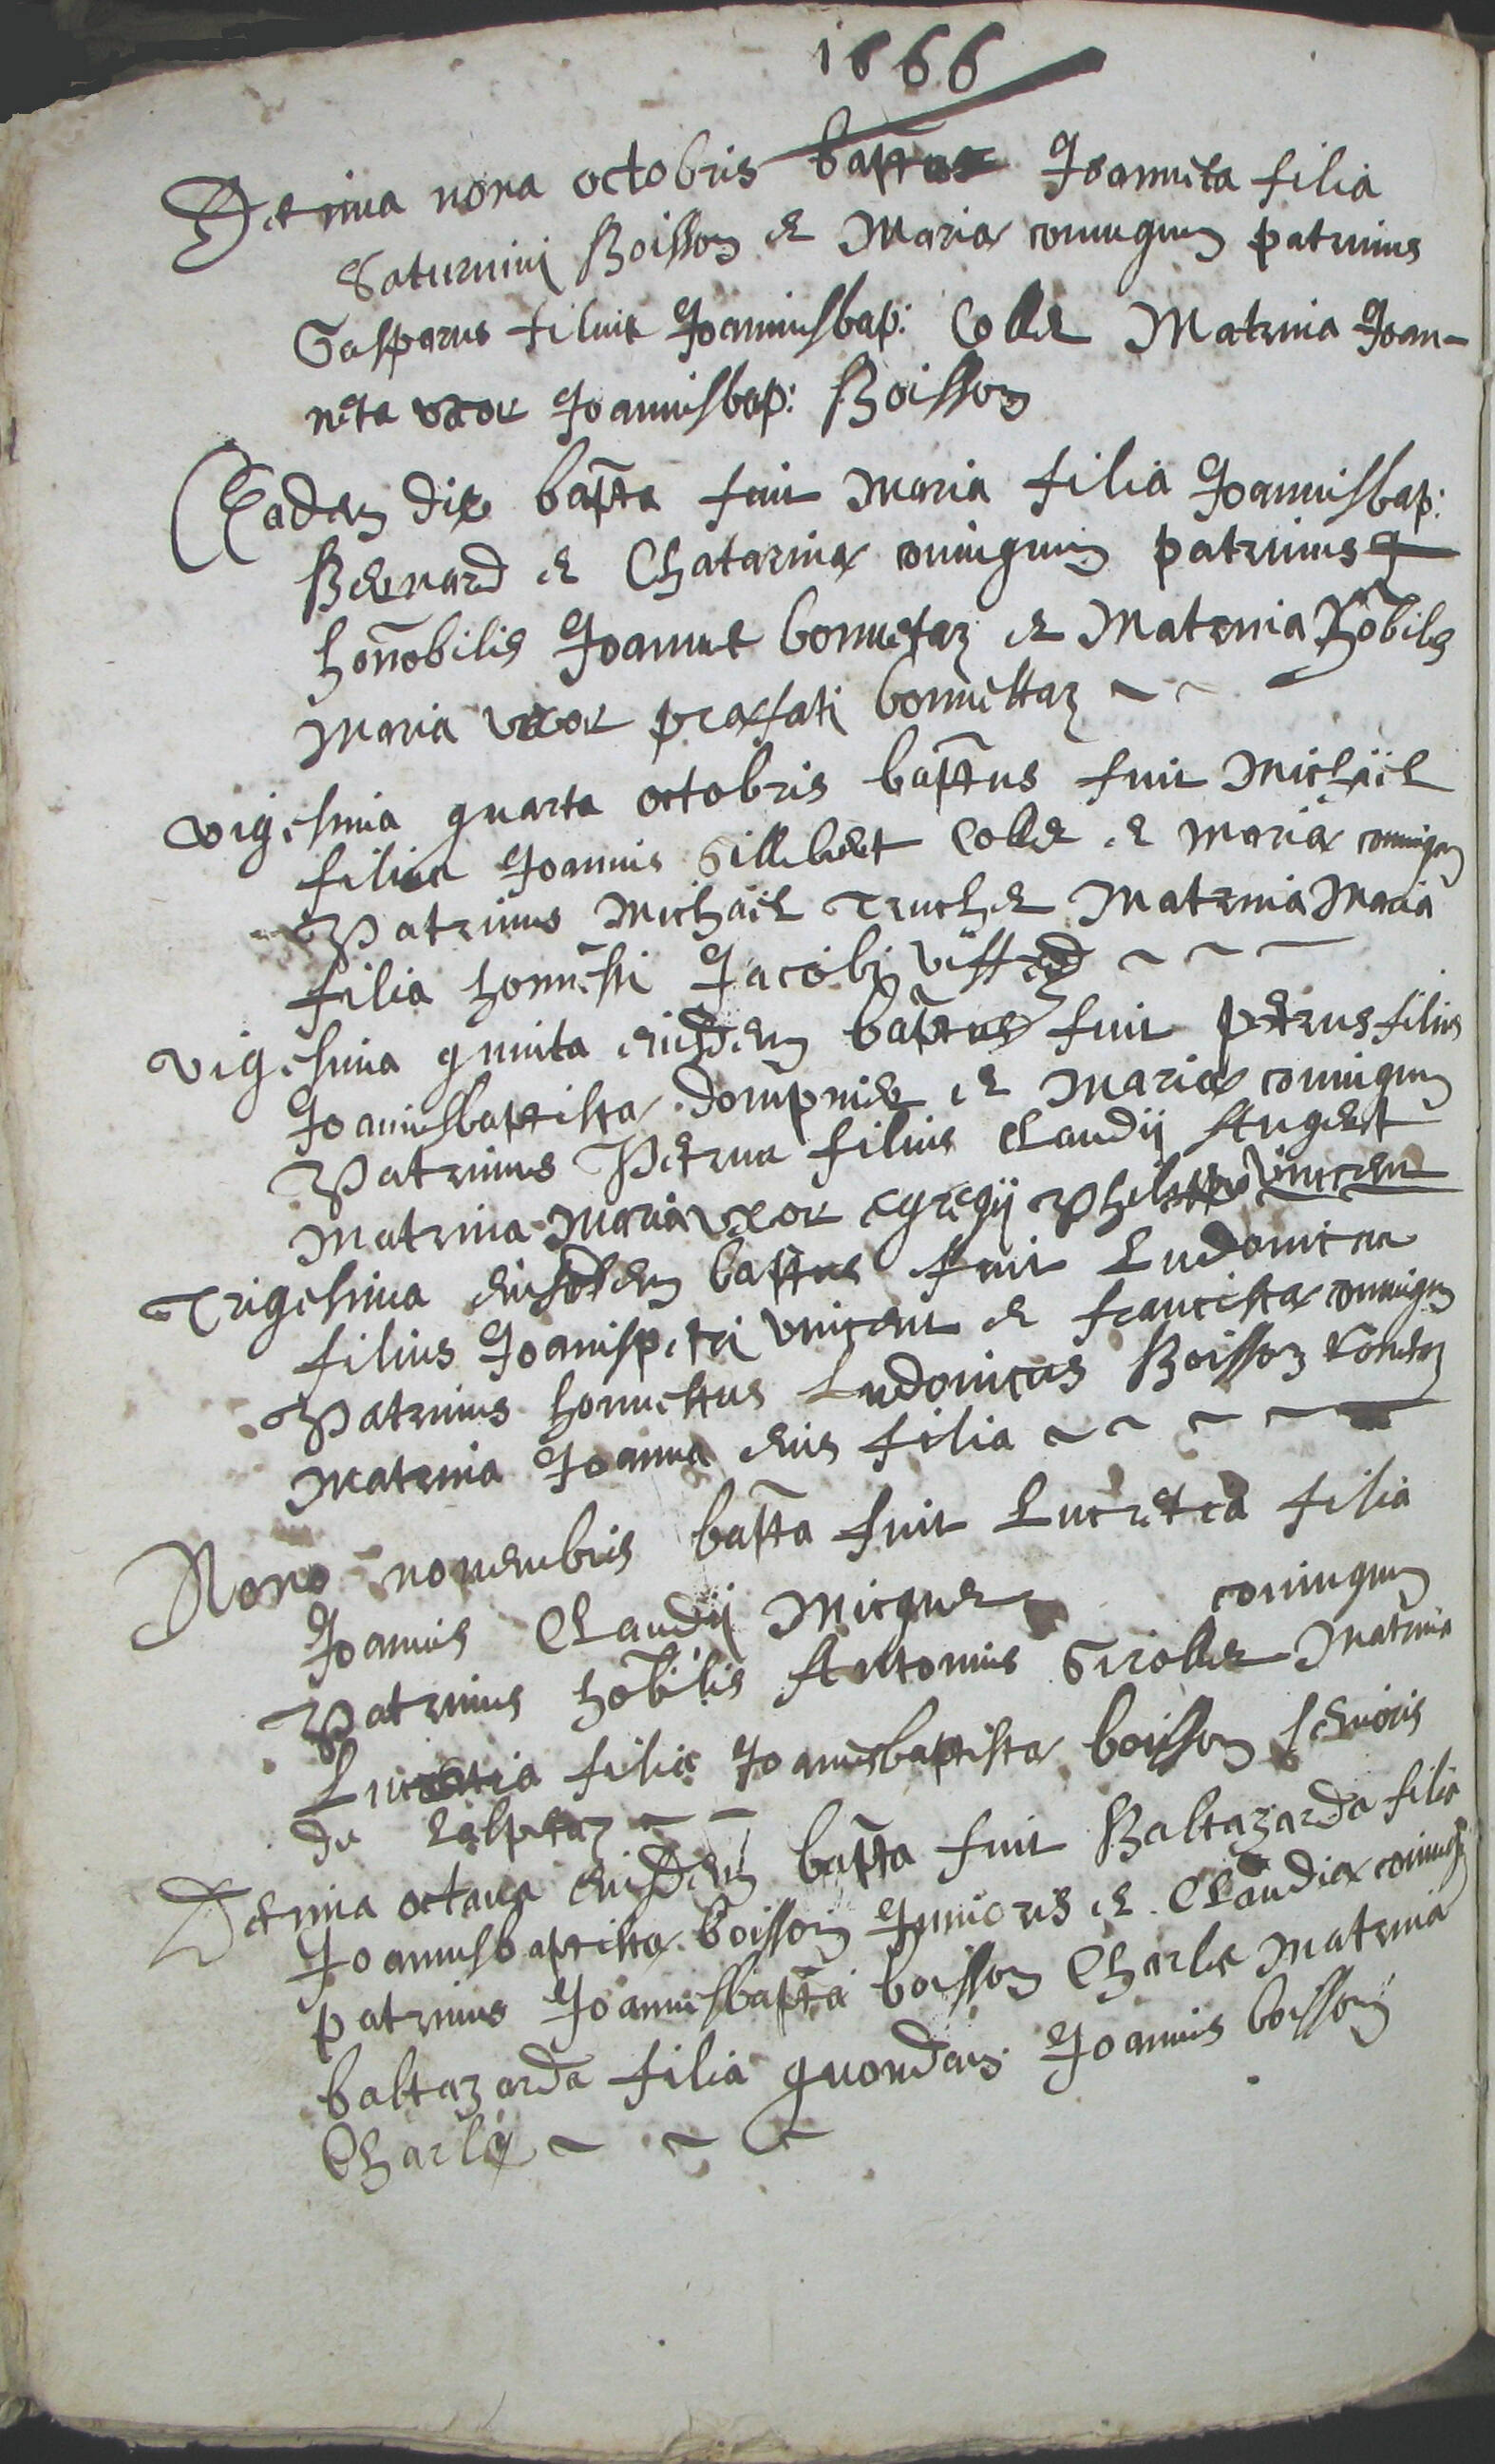 1666
Decima nona octobris bapta Joanneta filia
Saturnini Boisson et Mariæ coniugum patrinus
Gasparus filius Joannisbap: Collet Matrina Joan-
neta uxor Joannisbap: Boisson
Eadem die bapta fuit Maria filia Joannisbap:
Bernard et Chatarinæ coniugum patrinus
honobilis Joannes bonnefaz et Matrina hobilis
Maria uxor præfati bonnettaz
vigesima quarta octobris baptus fuit Michaël
filius Joannis Gillebert Collet et Mariæ coniugum
Patrinus Michaël Truchet Matrina Maria
filia honnesti Jacobi
vigesima quinta eiusdem baptus fuit petrus filius
Joannisbaptistæ dompnier et Mariæ coniugum
Patrinus Petrus filius Claudij Augert
Matrina Maria uxor egregij vincent
Trigesima eiusdem baptus fuit Ludovicus
filius Joannispetri vincent et franciscæ coniugum
Patrinus honnestus Ludovicus Boisson
Matrina Joanna eius filia
Nono novembris bapta fuit Lucretia filia
Joannis Claudij coniugum
Patrinus hobilis Antonius Girollet Matrina
Lucretia filia Joannisbaptistæ boisson senioris
de
Decima octava eiusdem bapta fuit Baltazarda filia
Joannisbaptistæ boisson Junioris et Claudiæ coniugum
patrinus Joannisbapta boisson Charle Matrina
baltazarda filia quondam Joannis boisson
Charle